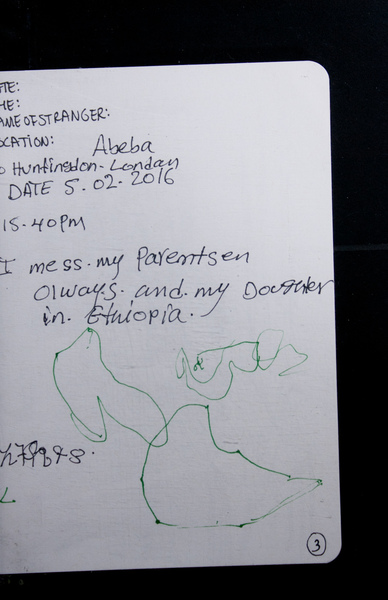 TE:
ME:
AME OF STRANGER:
OCATION: Abeba
Huntingdon - London
DATE 5.02.2016
15.40PM
I mess. my Parentsen
olways. and. my Doughter
in. Ethiopia.
3